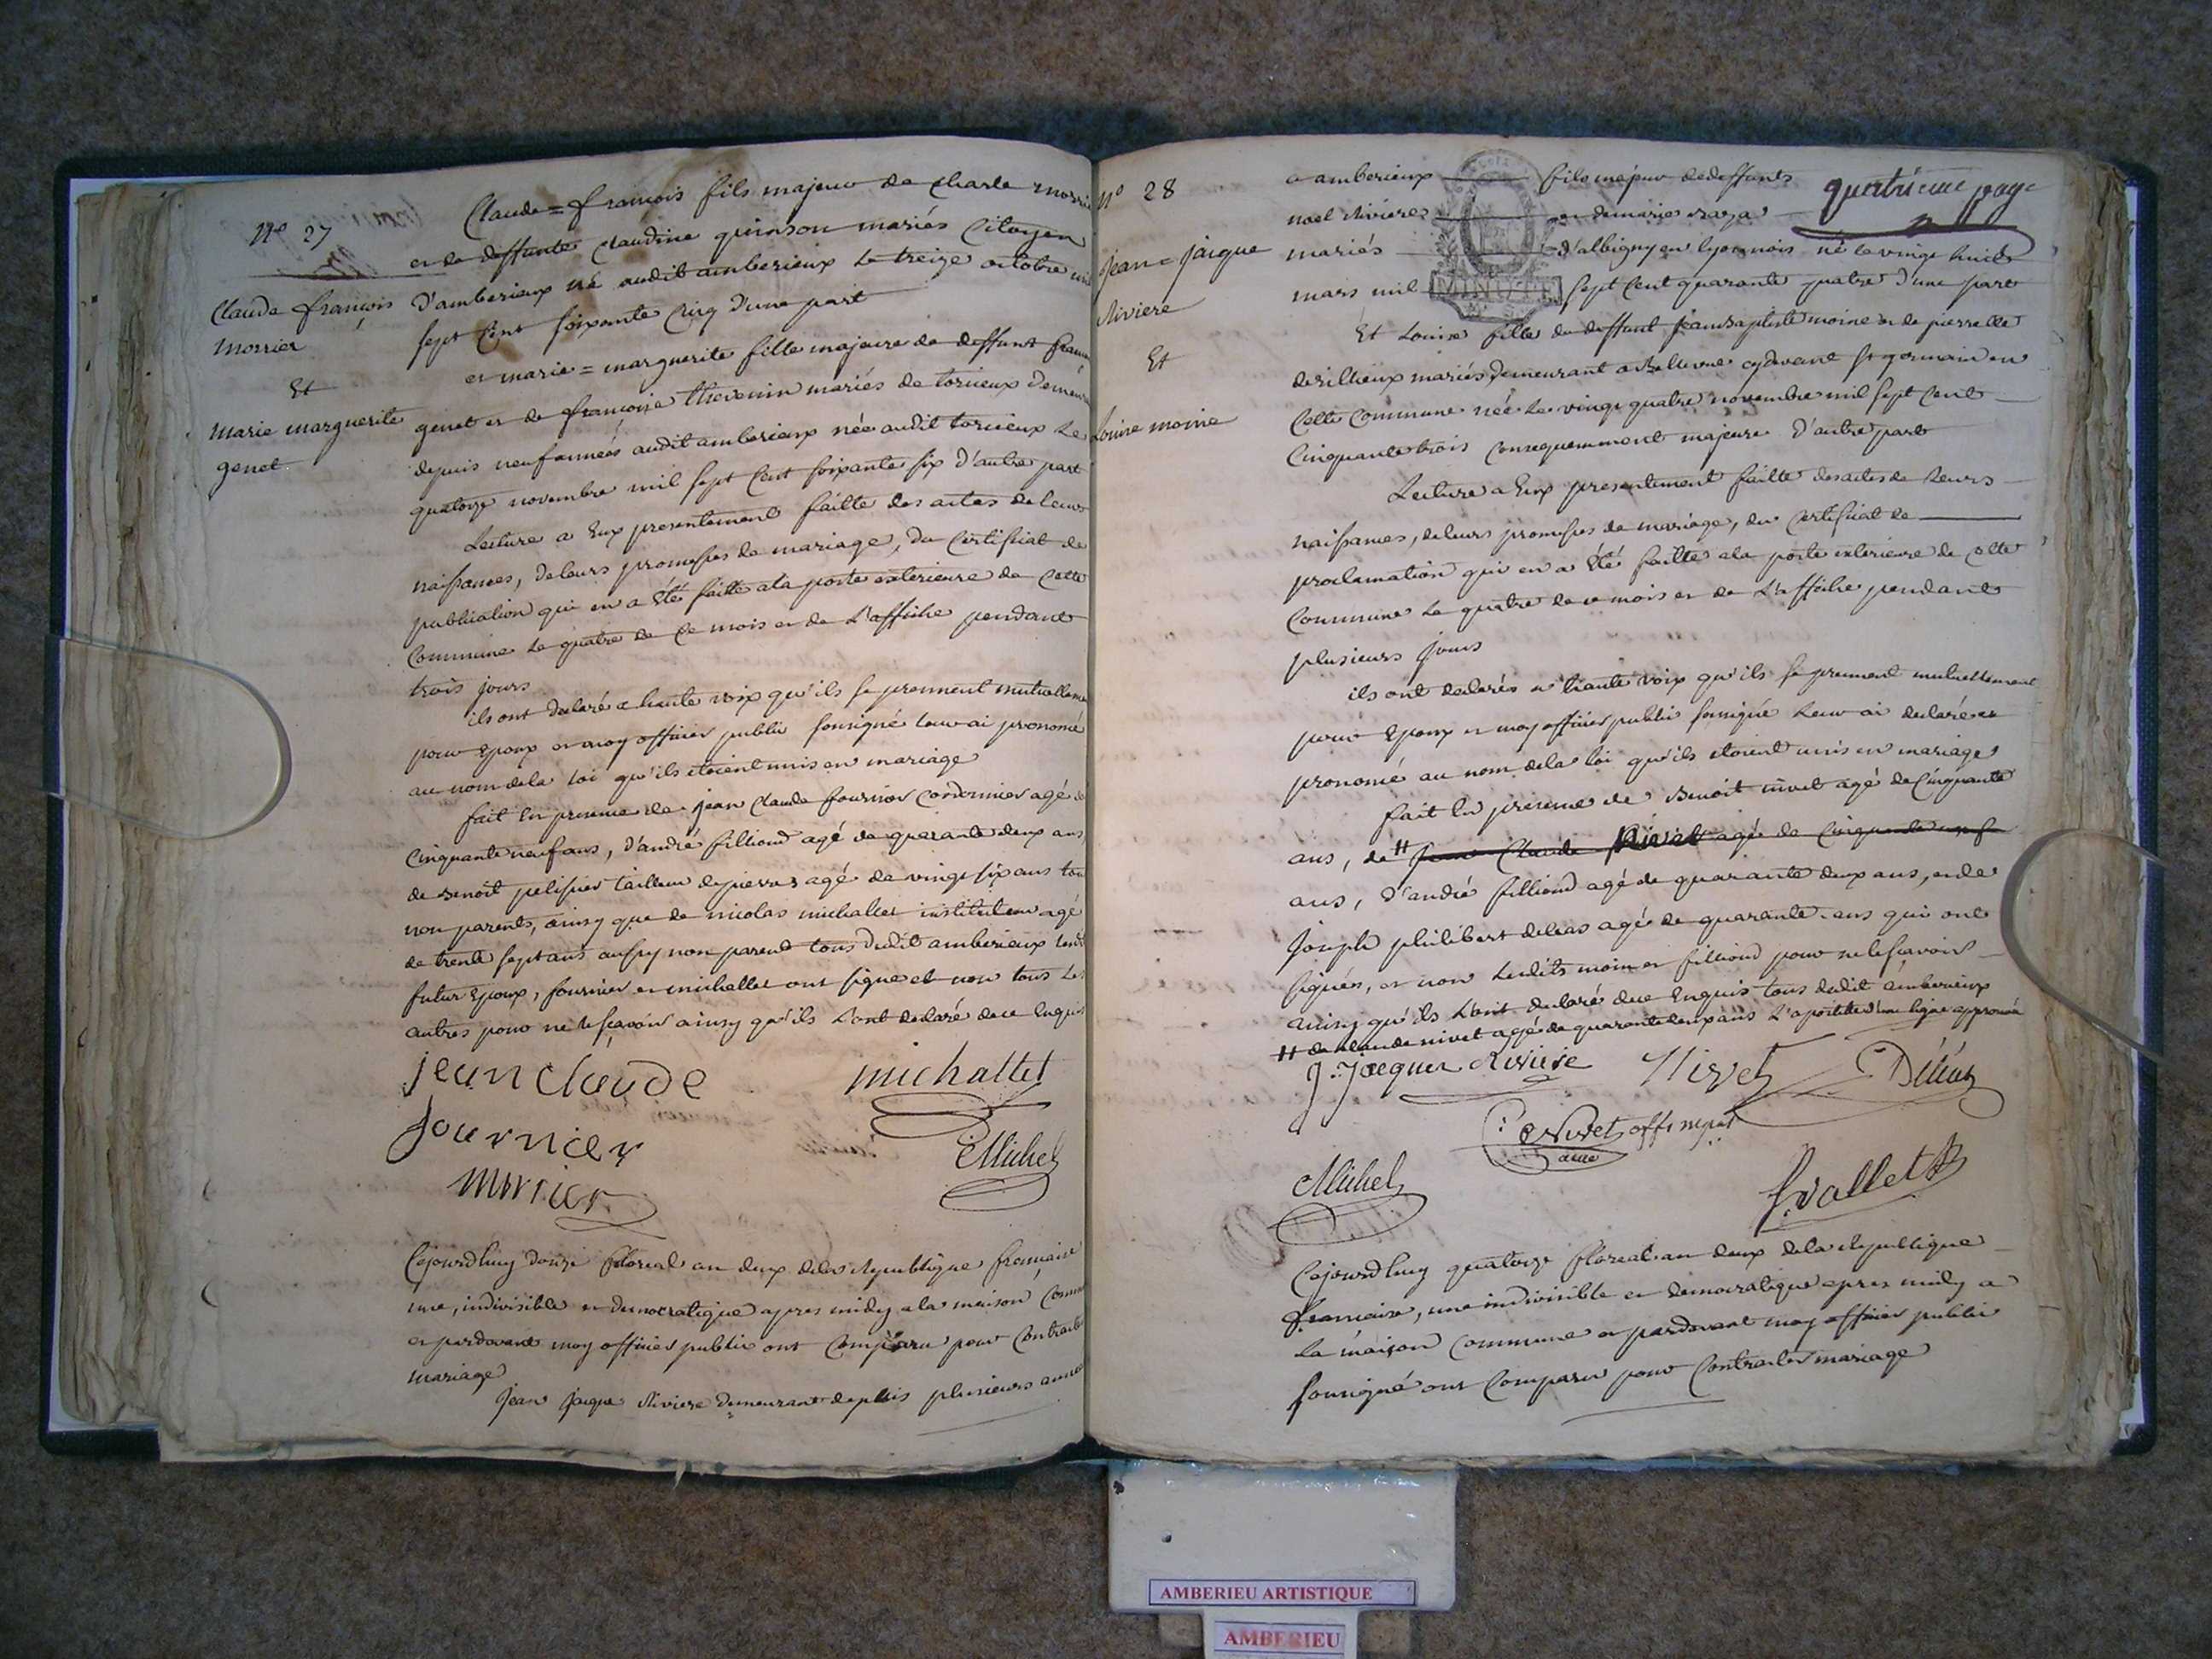 N° 27
Claude françois
Morrier
Et
Marie marguerite
genet
Claude = françois fils majeur de charle morrie
et de deffunte Claudine quinson mariés Citoyen
D'amberieux né audit amberieux Le treize octobre mil
sept Cent soixante Cinq d'une part
et marie = marguerite fille majeure de deffunt françois
genet et de françoise thevenin mariés de torcieux demeurant
depuis neuf années audit amberieux née audit torcieux Le
quatorze novembre mil sept Cent soixante six d'autre part
Lecture a Eux presentement faitte des actes de leurs
naissances, de leurs promesses de mariage, du Certificat de
publication qui en a été faitte a la porte exterieure de Cette
Commune Le quatre de Ce mois et de L'affiche pendant
trois jours
ils ont declaré a haute voix qu'ils se prennent mutuellement
pour Epoux et moy officier public soussigné leur ai prononcé
au nom de la loi qu'ils etoient unis en mariage
fait En presence de jean Claude fournier Cordonnier agé de
Cinquante neuf ans, d'andré filliond agé de quarante deux ans
de Benoit pelissier tailleur de pierres agé de vingt six ans tous
non parents, ainsy que de nicolas michallet instituteur agé
de trente sept ans aussy non parent tous dudit amberieux Ledit
futur Epoux, fournier et michallet ont signé et non tous Les
autres pour ne le sçavoir ainsy qu'ils L'ont declaré de ce Enquis
jean claude michallet
fournier
Michel
morrier
Cejourdhuy douze floreal an deux de la Republique francaise
une, indivisible et democratique apres midy a la maison Commune
et pardevant moy officier public ont Comparu pour Contracter
mariage
Jean Jacque Riviere demeurant depuis plusieurs années
N° 28
Jean = Jacque
Riviere
Et
Louise moine
quatrieme page
a amberieux fils majeur de deffunts
noel Rivieres et de marie
mariés d'albigny en lyonnois né le vingt huit
mars mil sept Cent quarante quatre d'une part
MINUTE
Et Louise fille de deffunt jean baptiste moine et de pierrette
derillieux mariés demeurant a Bellevue cydevant St germain en
Cette Commune née Le vingt quatre novembre mil sept Cent
Cinquante trois Consequemment majeure D'autre part
Lecture a Eux presentement faitte des actes de Leurs
naissances, de leurs promesses de mariage, du Certificat de
proclamation qui en a Eté faitte a la porte exterieure de Cette
Commune Le quatre de ce mois et de L'affiche pendant
plusieurs jours
ils ont declarés a haute voix qu'ils se prennent mutuellement
pour Epoux et moy officier public soussigné leur ai declaré et
prononcé au nom de la loi qu'ils etoient unis en mariage
fait En presence de Benoit nivet agé de Cinquante
ans, de # jean Claude Nivet agé de Cinquante
ans, d'andré filliond agé de quarante deux ans, et de
Joseph philibert deleas agé de quarante ans qui ont
signés, et non Lesdits moine et filliond pour ne le scavoir
ainsy qu'ils L'ont declaré de ce Enquis tous dudit amberieux
# de Claude nivet agé de quarante deux ans L'apostille d'une ligne approuvée
J. Jacques Riviere Nivet Déléas
Nivet off municipal
Michel
Cejourdhuy quatorze floreal an deux de la Republique
francaise, une indivisible et democratique apres midy a
La maison Commune et pardevant moy officier public
soussigné ont Comparu pour Contracter mariage
AMBERIEU ARTISTIQUE
AMBERIEU